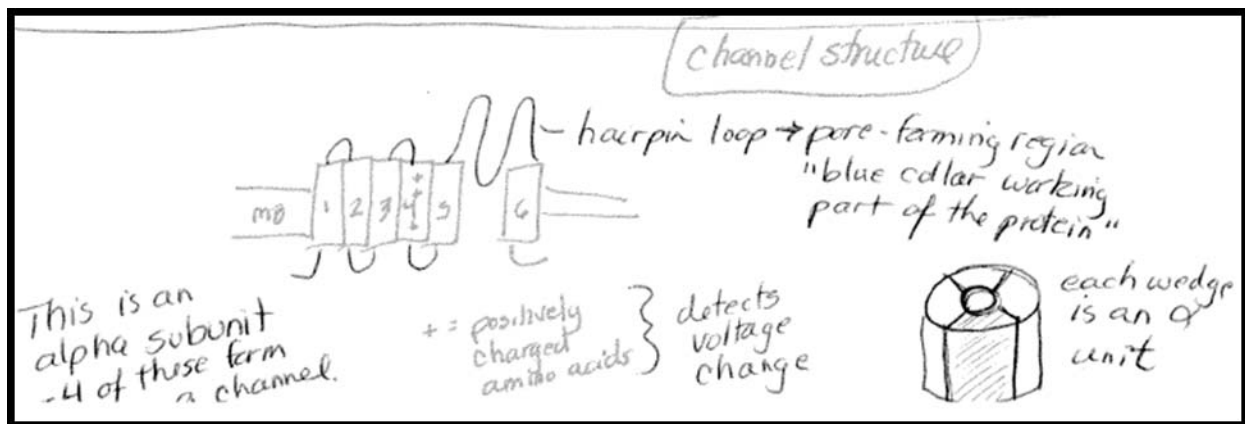 channel structure
hairpin loop → pore-forming region
"blue collar working
part of the protein"
mB 1 2 3 4 5 6
+
+
+
This is an
alpha subunit
-4 of these form
a channel.
+ = positively
charged
amino acids
detects
voltage
change
each wedge
is an α
unit